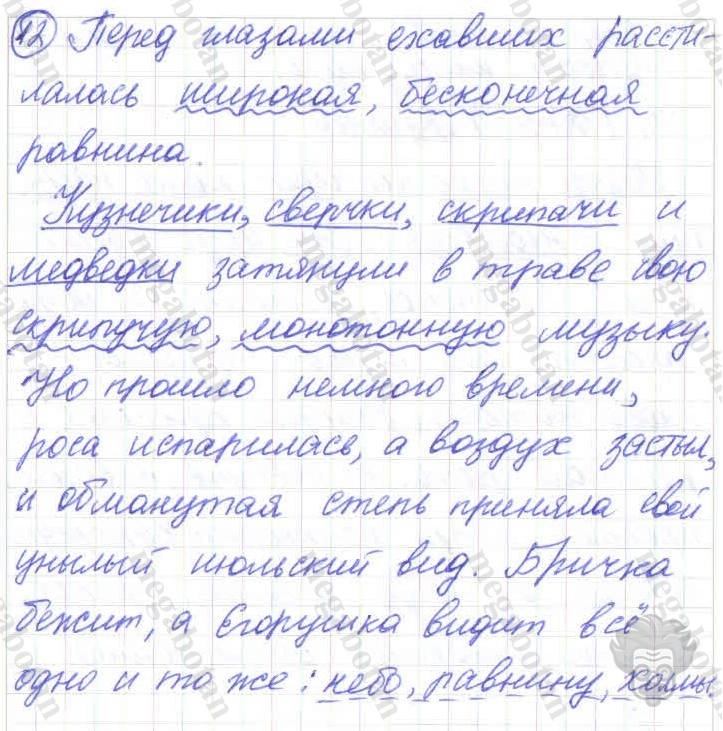 12 Перед глазами ехавших рассти-
лалась широкая, бесконечная
равнина.
Кузнечики, сверчки, скрипачи и
медведки затянули в траве свою
скрипучую, монотонную музыку.
Но прошло немного времени,
роса испарилась, а воздух застыл,
и обманутая степь приняла свой
унылый июльский вид. Бричка
бежит, а Егорушка видит всё
одно и то же: небо, равнину, холмы.